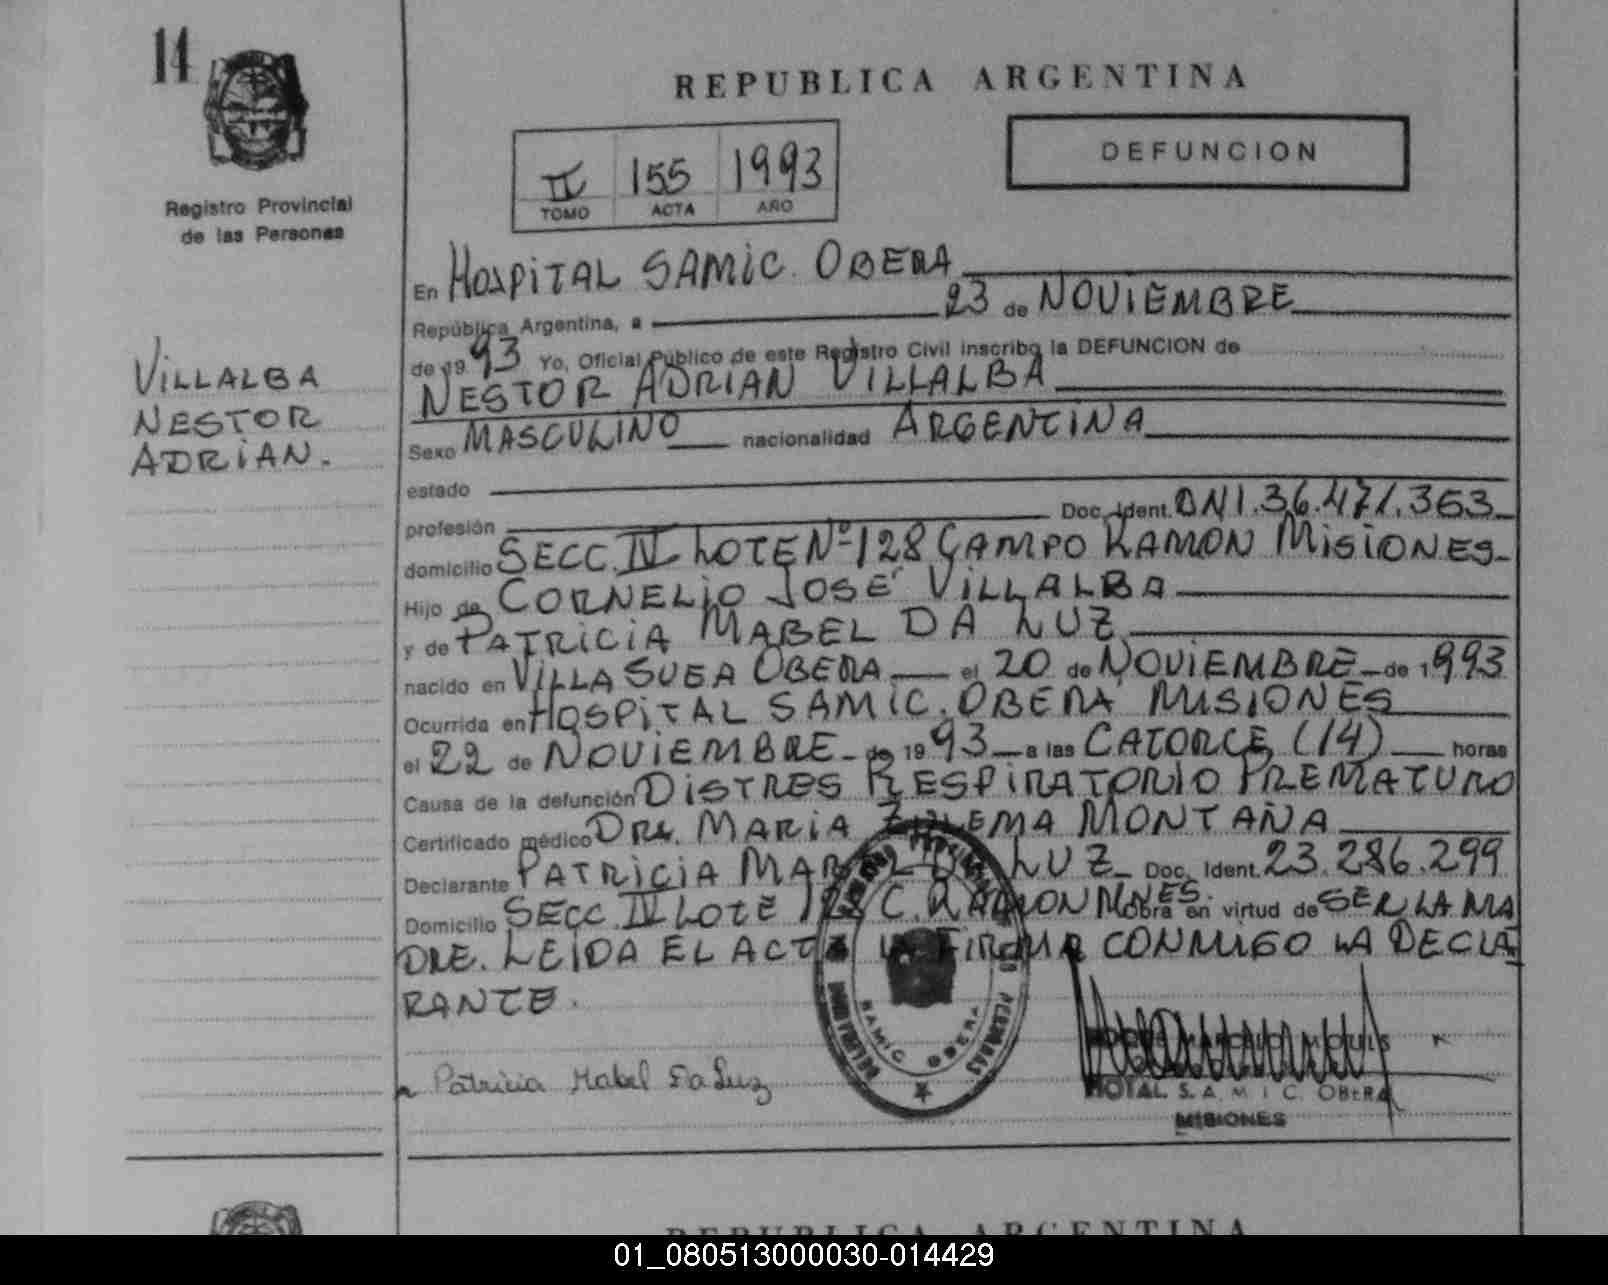 14
REPUBLICA ARGENTINA
DEFUNCION
II 155 1993
TOMO ACTA AÑO
Registro Provincial
de las Personas
VILLALBA
NESTOR
ADRIAN.
En HOSPITAL SAMIC. OBERA
República Argentina, a 23 de NOVIEMBRE
de 19 93 Yo, Oficial Público de este Registro Civil inscribo la DEFUNCION de
NESTOR ADRIAN VILLALBA
Sexo MASCULINO nacionalidad ARGENTINA
estado
profesión Doc. Ident. DNI.36.471.363
domicilio SECC. IV LOTE Nº 128 CAMPO RAMON MISIONES-
Hijo de CORNELIO JOSÉ VILLALBA
y de PATRICIA MABEL DA LUZ
nacido en VILLA SUEA OBERA el 20 de NOVIEMBRE de 1993
Ocurrida en HOSPITAL SAMIC. OBERÁ MISIONES
el 22 de NOVIEMBRE de 19 93 a las CATORCE (14) horas
Causa de la defunción DISTRES RESPIRATORIO PREMATURO
Certificado médico DRA. MARIA ZULEMA MONTAÑA
Declarante PATRICIA MABEL DA LUZ Doc. Ident. 23.286.299
Domicilio SECC. IV LOTE 128 C. RAMON MNES. Obra en virtud de SER LA MA
DRE. LEIDA EL ACTA LA FIRMA CONMIGO LA DECLA
RANTE.
Patricia Mabel Da Luz
SAMIC OBERA
HOTAL S. A. M. I. C. OBERA
MISIONES
REPUBLICA ARGENTINA
01_080513000030-014429